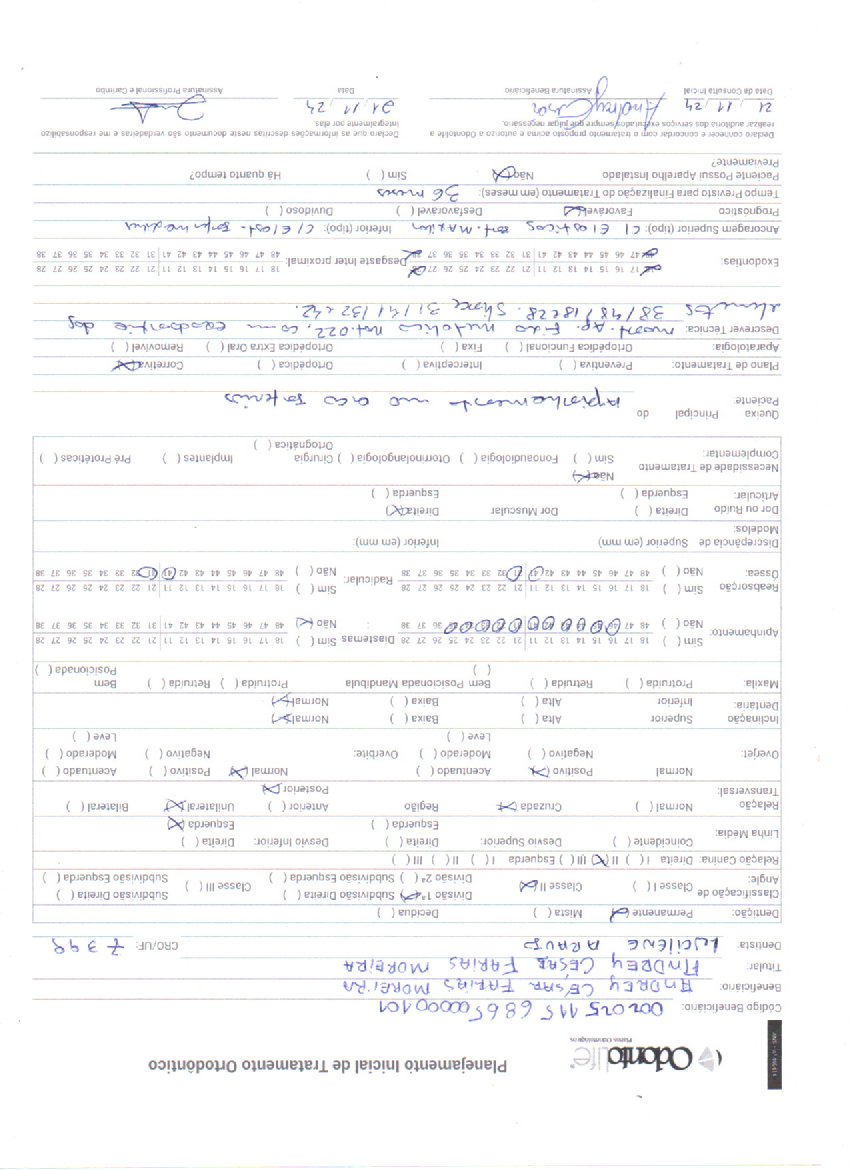 OdontoLife
Planos Odontológicos
Planejamento Inicial de Tratamento Ortodôntico
Código Beneficiário: 002025 115 686500000101
Beneficiário: ANDREY CÉSAR FARIAS MOREIRA
Titular: ANDREY CESAR FARIAS MOREIRA
Dentista: LUCILENE ARAUJO CRO/UF: 7399
Dentição: Permanente (X) Mista ( ) Decídua ( )
Classificação de Angle: Classe I ( ) Classe II (X) Divisão 1ª (X) Subdivisão Direita ( ) Subdivisão Direita ( )
Divisão 2ª ( ) Subdivisão Esquerda ( ) Classe III ( ) Subdivisão Esquerda ( )
Relação Canina: Direita I ( ) II (X) III ( ) Esquerda I ( ) II ( ) III ( )
Linha Média: Coincidente ( ) Desvio Superior: Direita ( ) Desvio Inferior: Direita ( )
Esquerda ( ) Esquerda (X)
Relação Transversal: Normal ( ) Cruzada (X) Região Anterior ( ) Unilateral (X) Bilateral ( )
Posterior (X)
Overjet: Normal Positivo (X) Acentuado ( ) Overbite: Normal (X) Positivo ( ) Acentuado ( )
Negativo ( ) Moderado ( ) Negativo ( ) Moderado ( )
Leve ( ) Leve ( )
Inclinação Dentária: Superior Alta ( ) Baixa ( ) Normal (X)
Inferior Alta ( ) Baixa ( ) Normal (X)
Maxila: Protruida ( ) Retruida ( ) Bem Posicionada ( ) Mandíbula Protruida ( ) Retruida ( ) Bem Posicionada ( )
Apinhamento: Sim ( ) 18 17 16 15 14 13 12 11 21 22 23 24 25 26 27 28 Diastemas : Sim ( ) 18 17 16 15 14 13 12 11 21 22 23 24 25 26 27 28
Não ( ) 48 47 36 37 38 Não (X) 48 47 46 45 44 43 42 41 31 32 33 34 35 36 37 38
Reabsorção Óssea: Sim ( ) 18 17 16 15 14 13 12 11 21 22 23 24 25 26 27 28 Radicular: Sim ( ) 18 17 16 15 14 13 12 11 21 22 23 24 25 26 27 28
Não ( ) 48 47 46 45 44 43 42 41 31 32 33 34 35 36 37 38 Não ( ) 48 47 46 45 44 43 42 41 31 32 33 34 35 36 37 38
Discrepância de Modelos: Superior (em mm) Inferior (em mm):
Dor ou Ruído Articular: Direita ( ) Dor Muscular Direita (X)
Esquerda ( ) Esquerda ( )
Necessidade de Tratamento Complementar: Não (X)
Sim ( ) Fonoaudiologia ( ) Otorrinolangologia ( ) Cirurgia Ortognática ( ) Implantes ( ) Pré Protéticas ( )
Queixa Principal do Paciente
Plano de Tratamento: Preventiva ( ) Interceptiva ( ) Ortopédica ( ) Corretiva (X)
Aparatologia: Ortopédica Funcional ( ) Fixa ( ) Ortopédica Extra Oral ( ) Removível ( )
Descrever Técnica: mont. Ap. Fixo metálico rot.022, com exodontia dos
elementos 38/48/18 e 28. 31/41/32 e 42.
Exodontias: 17 16 15 14 13 12 11 21 22 23 24 25 26 27 Desgaste Inter proximal: 18 17 16 15 14 13 12 11 21 22 23 24 25 26 27 28
47 46 45 44 43 42 41 31 32 33 34 35 36 37 48 47 46 45 44 43 42 41 31 32 33 34 35 36 37 38
Ancoragem Superior (tipo): C/ Elasticos int. Maxilar Inferior (tipo): C/ Elast.
Prognostico Favorável (X) Desfavorável ( ) Duvidoso ( )
Tempo Previsto para Finalização do Tratamento (em meses): 36 meses
Paciente Possui Aparelho Instalado Previamente? Não (X) Sim ( ) Há quanto tempo?
Declaro conhecer e concordar com o tratamento proposto acima e autorizo a Odontolife a realizar auditoria dos serviços executados, sempre que julgar necessário.
Declaro que as informações descritas neste documento são verdadeiras e me responsabilizo integralmente por elas
21, 11, 24 Andrey Cesar 21, 11, 24
Data da Consulta Inicial Assinatura Beneficiário Data Assinatura Profissional e Carimbo